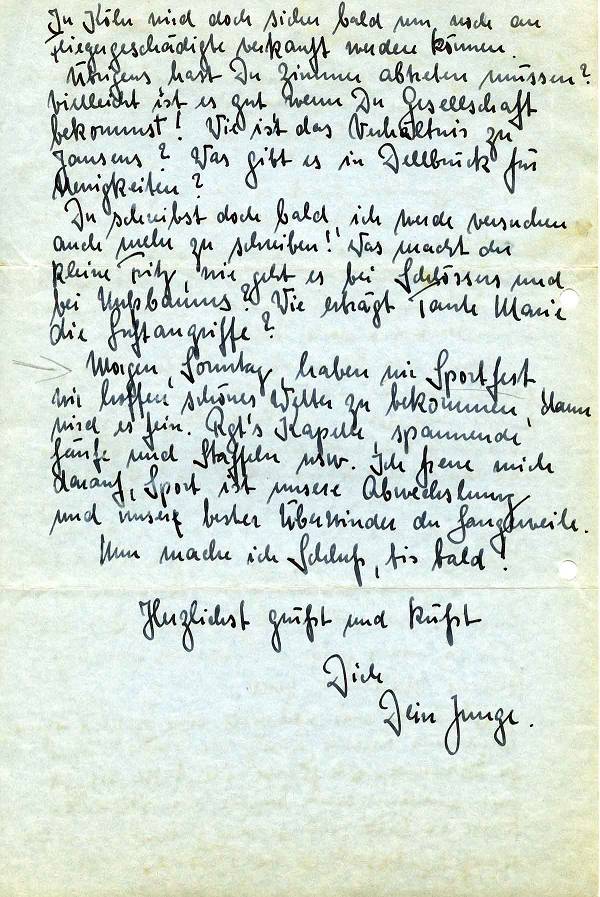 In Köln wird doch sicher bald nur noch an
Fliegergeschädigte verkauft werden können.
Übrigens hast Du Zimmer abtreten müssen?
Vielleicht ist es gut wenn Du Gesellschaft
bekommst! Wie ist das Verhältnis zu
Jansens? Was gibt es in Dellbrück für
Neuigkeiten?
Du schreibst doch bald, ich werde versuchen
auch mehr zu schreiben! Was macht der
kleine Fritz, wie geht es bei Schlössers und
bei Nußbaums? Wie erträgt Tante Marie
die Luftangriffe?
Morgen, Sonntag, haben wir Sportfest
wir hoffen schönes Wetter zu bekommen, dann
wird es fein. Rgt's Kapelle, spannende
Läufe und Staffeln usw. Ich freue mich
darauf, Sport ist unsere Abwechslung
und unser bester Überwinder der Langeweile.
Nun mache ich Schluß, bis bald!
Herzlichst grüßt und küßt
Dich
Dein Junge.